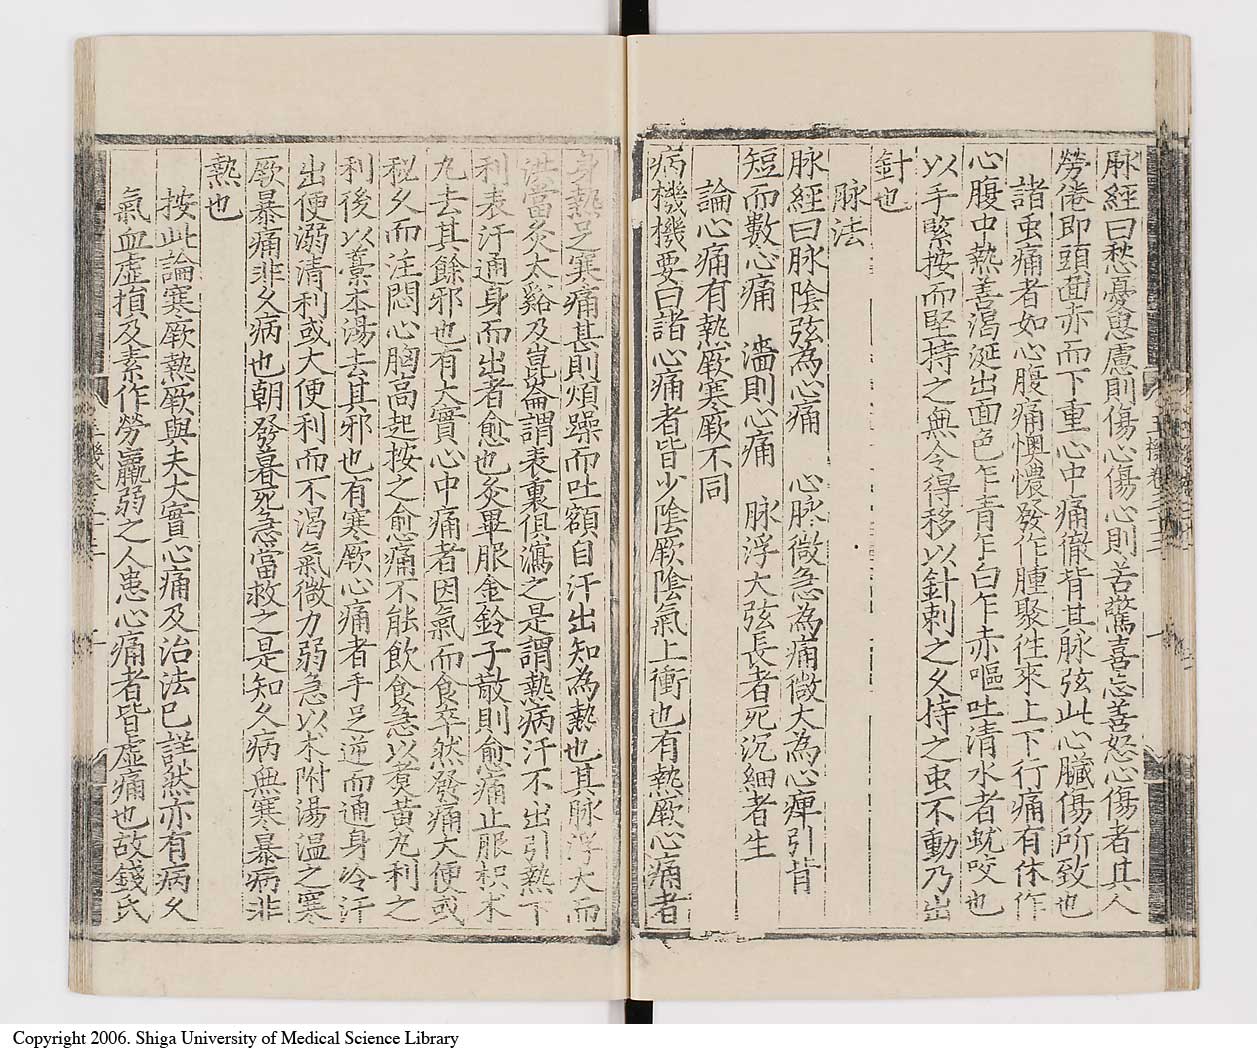 脉經曰愁憂思慮則傷心傷心則苦驚喜忘善怒心傷者其人
勞倦即頭面赤而下重心中痛徹背其脉弦此心臟傷所致也
諸虫痛者如心腹痛懊憹發作腫聚往來上下行痛有休作
心腹中熱善渴涎出面色乍青乍白乍赤嘔吐清水者蚘咬也
以手緊按而堅持之無令得移以針刺之久持之虫不動乃出
針也
脉法
脉經曰脉陰弦為心痛 心脉微急為痛微大為心痺引背
短而數心痛 濇則心痛 脉浮大弦長者死沉細者生
論心痛有熱厥寒厥不同
病機機要曰諸心痛者皆少陰厥陰氣上衝也有熱厥心痛者
身熱足寒痛甚則煩躁而吐額自汗出知為熱也其脉浮大而
洪當灸太谿及崑崙謂表裏俱瀉之是謂熱病汗不出引熱下
利表汗通身而出者愈也灸畢服金鈴子散則愈痛止服枳朮
丸去其餘邪也有大實心中痛者因氣而食卒然發痛大便或
秘久而注悶心胸高起按之愈痛不能飲食急以煑黃丸利之
利後以藁本湯去其邪也有寒厥心痛者手足逆而通身冷汗
出便溺清利或大便利而不渴氣微力弱急以朮附湯温之寒
厥暴痛非久病也朝發暮死急當救之是知久病無寒暴病非
熱也
按此論寒厥熱厥與夫大實心痛及治法已詳然亦有病久
氣血虛損及素作勞羸弱之人患心痛者皆虛痛也故錢氏
Copyright 2006. Shiga University of Medical Science Library